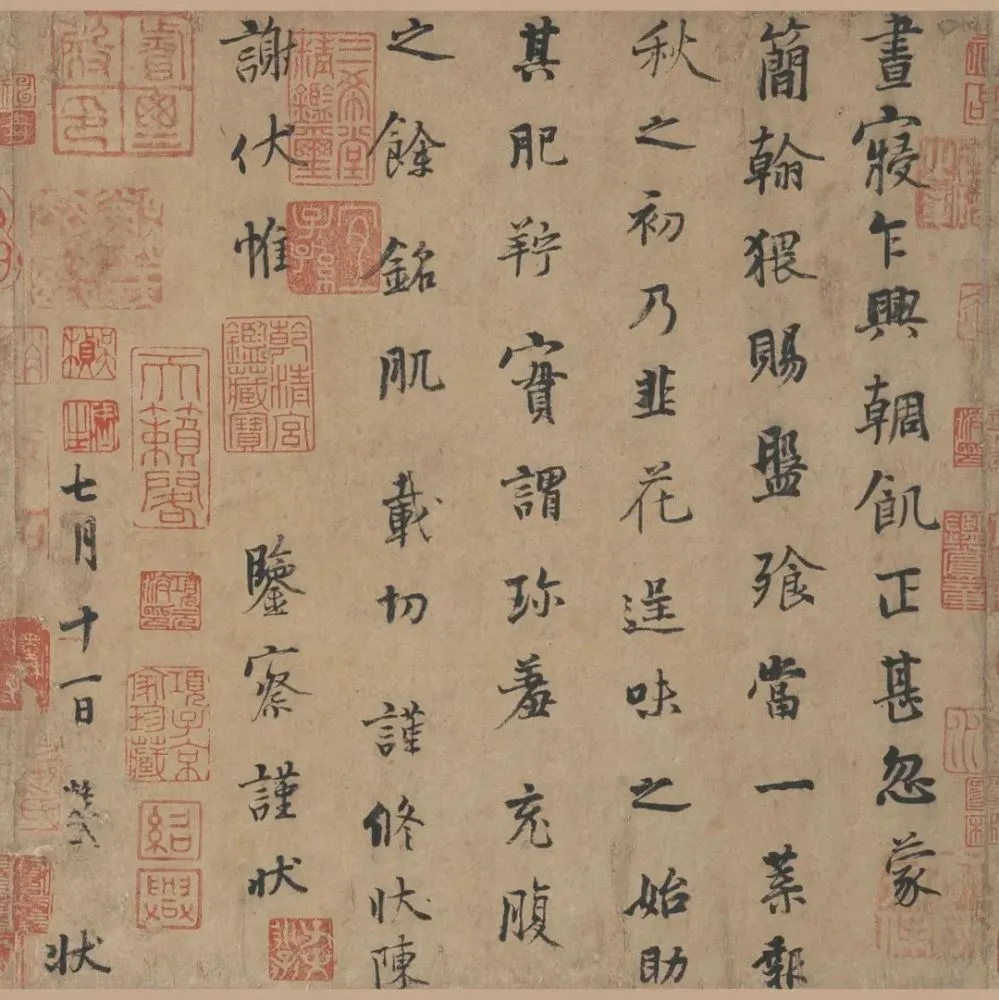 晝寢乍興輖飢正甚忽蒙
簡翰猥賜盤飱當一葉報
秋之初乃韭花逞味之始助
其肥羜實謂珍羞充腹
之餘銘肌載切謹修狀陳
謝伏惟鑒察謹狀
七月十一日狀
三希堂精鑑璽
宜子孫
乾清宮鑑藏寶
天籟閣
項子京家珍藏
紹興